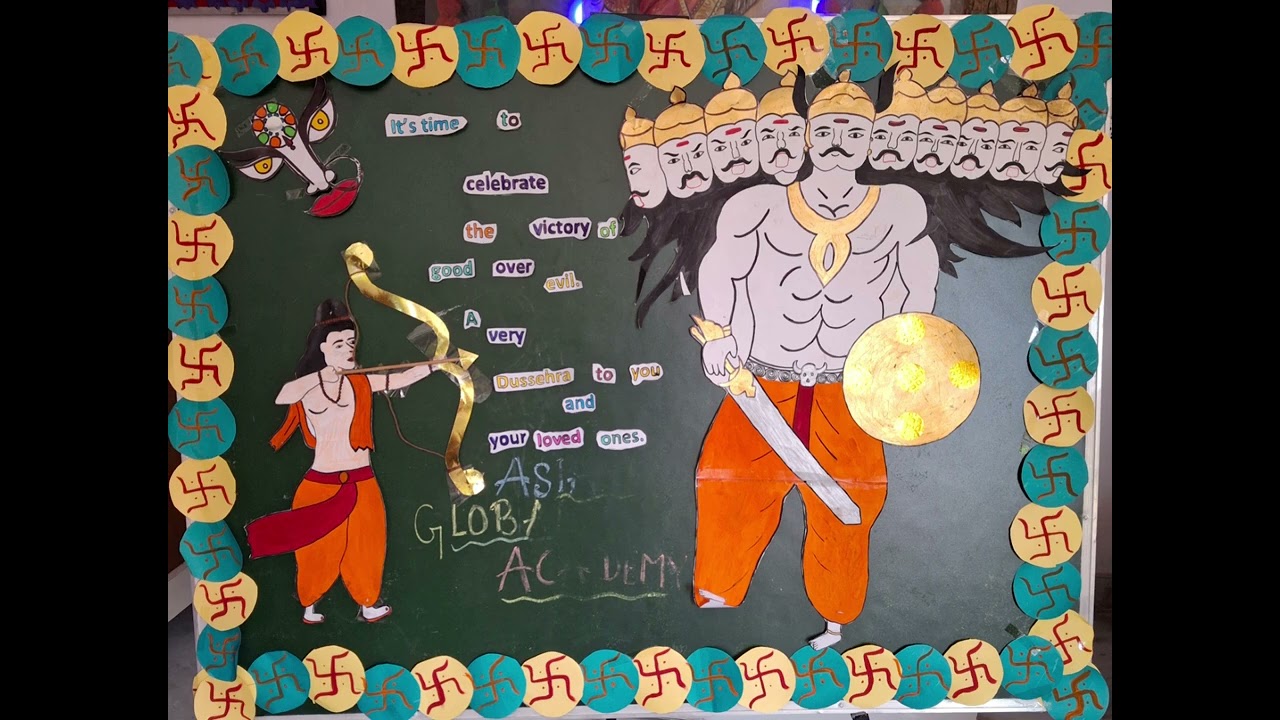 It's time to
celebrate
the victory of
good over evil.
A very
Dussehra to you
and
your loved ones.
ACADEMY